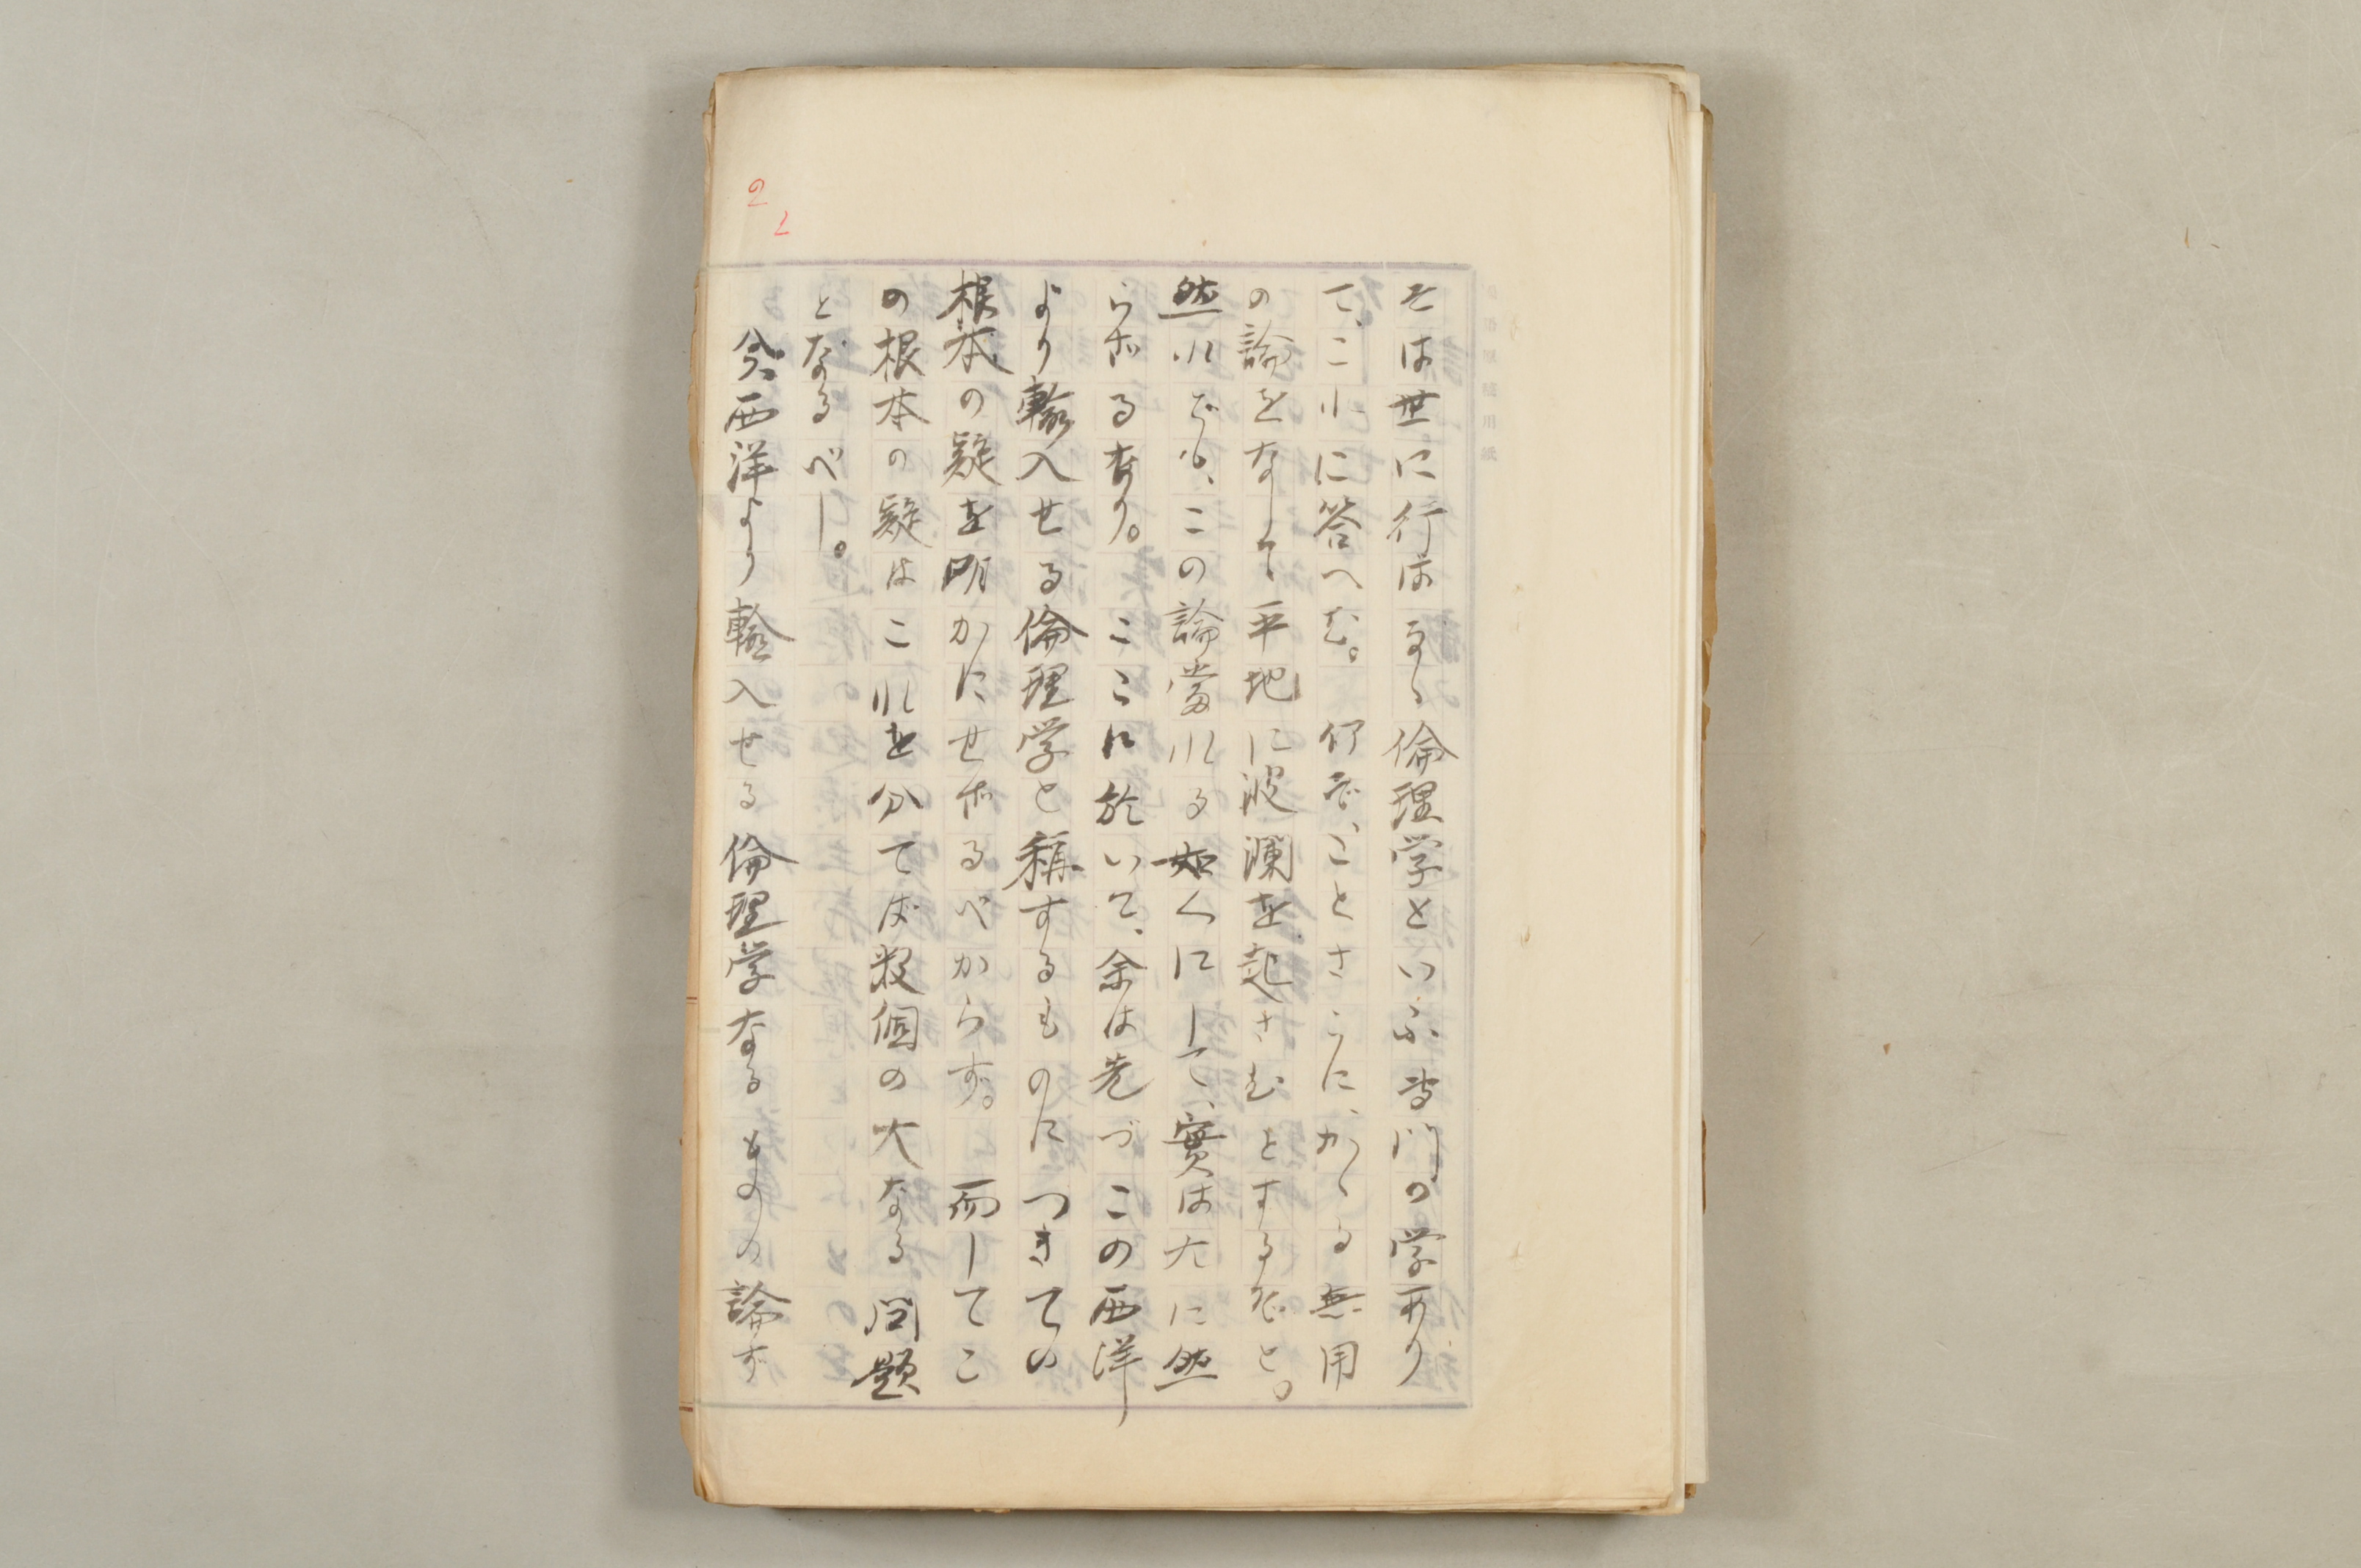 そは世に行はるゝ倫理学といふ専門の学あり
て、これに答へむ。何ぞ、ことさらに、かゝる無用
の論をなして平地に波瀾を起さむとするぞと。
然れども、この論當れる如くにして、實は大に然
らざるなり。ここに於いて、余は先づこの西洋
より輸入せる倫理学と稱するものにつきての
根本の疑を明かにせざるべからず。而してこ
の根本の疑はこれを分てば数個の大なる問題
となるべし。
今西洋より輸入せる倫理学なるものの論ず
2